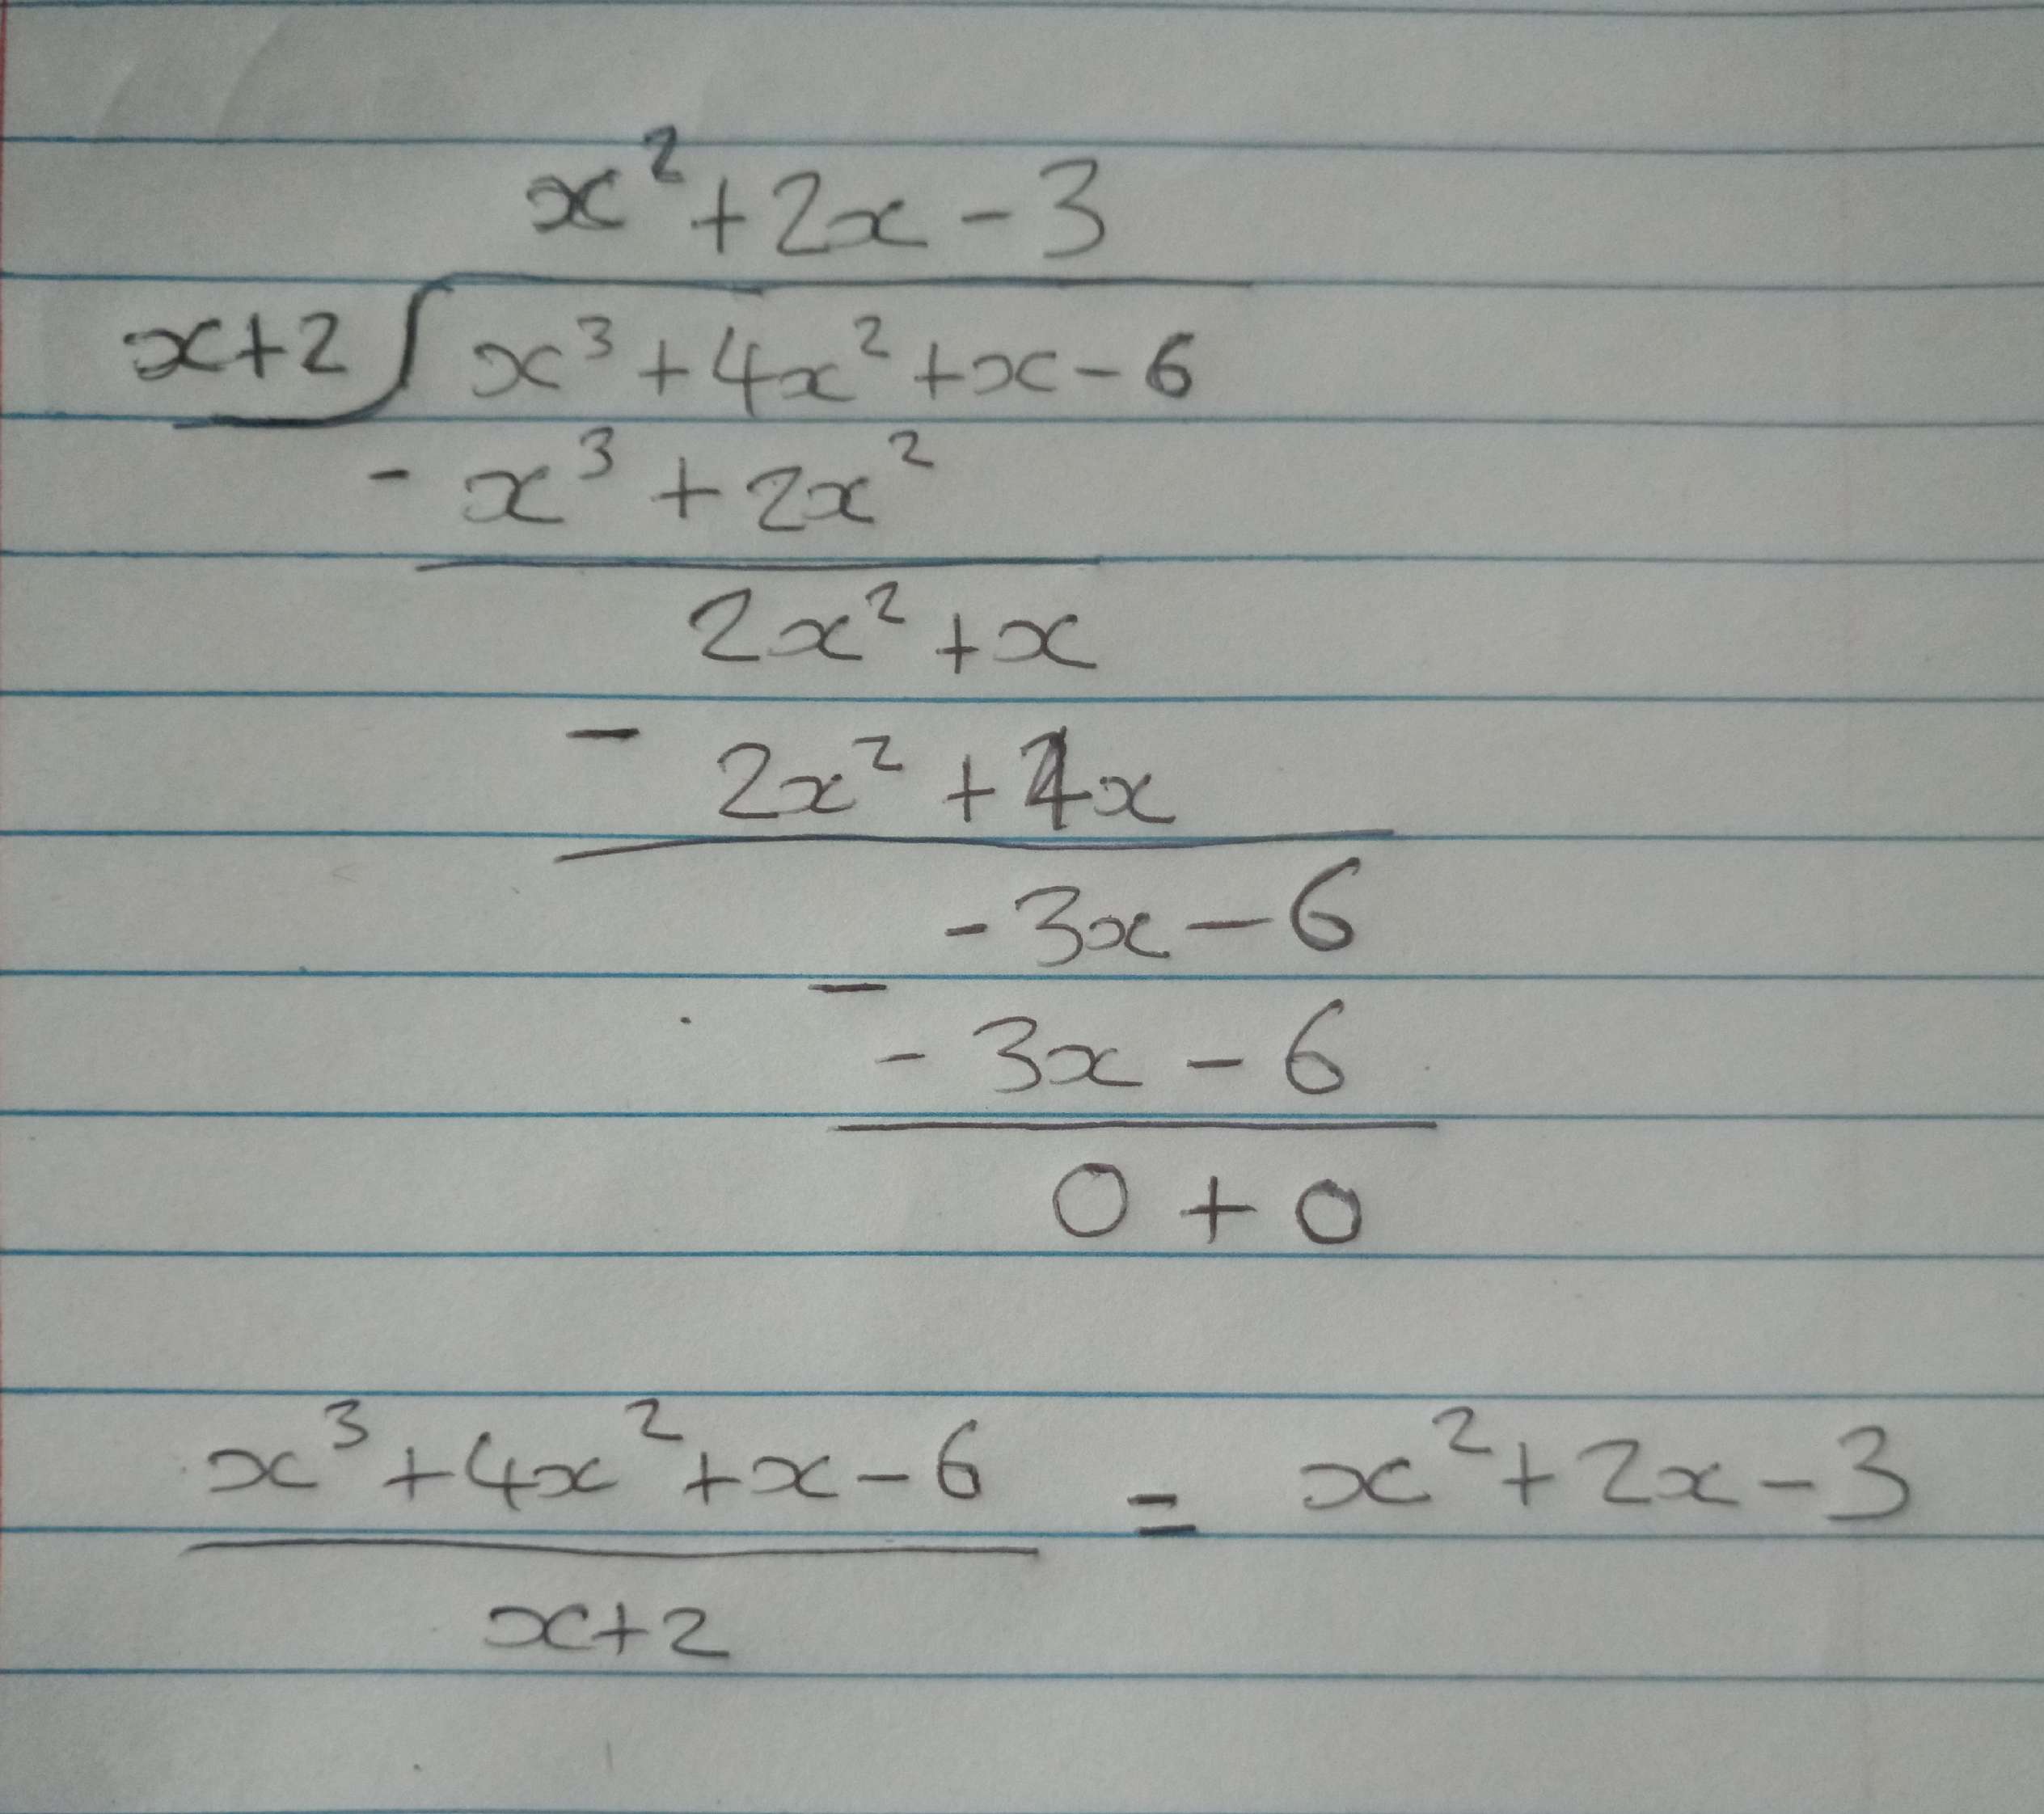 x² + 2x - 3
x+2 ∫ x³ + 4x² + x - 6
- x³ + 2x²
2x² + x
- 2x² + 4x
-3x - 6
- -3x - 6
0 + 0
x³ + 4x² + x - 6 = x² + 2x - 3
x+2